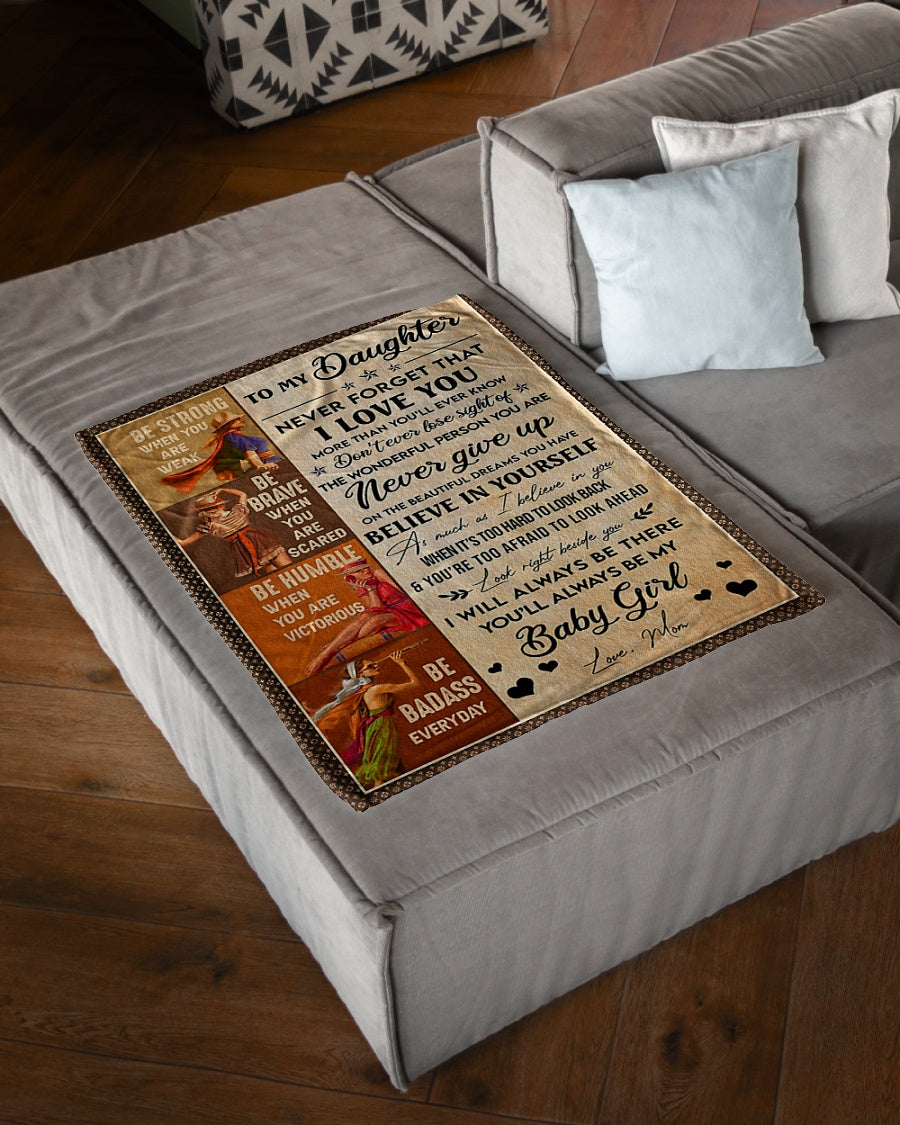 TO MY Daughter
NEVER FORGET THAT
I LOVE YOU
MORE THAN YOU'LL EVER KNOW
Don't ever lose sight of
THE WONDERFUL PERSON YOU ARE
Never give up
ON THE BEAUTIFUL DREAMS YOU HAVE
BELIEVE IN YOURSELF
As much as I believe in you
WHEN IT'S TOO HARD TO LOOK BACK
& YOU'RE TOO AFRAID TO LOOK AHEAD
Look right beside you
I WILL ALWAYS BE THERE
YOU'LL ALWAYS BE MY
Baby Girl
Love, Mom
BE STRONG
WHEN YOU
ARE
WEAK
BE
BRAVE
WHEN
YOU
ARE
SCARED
BE HUMBLE
WHEN
YOU ARE
VICTORIOUS
BE
BADASS
EVERYDAY